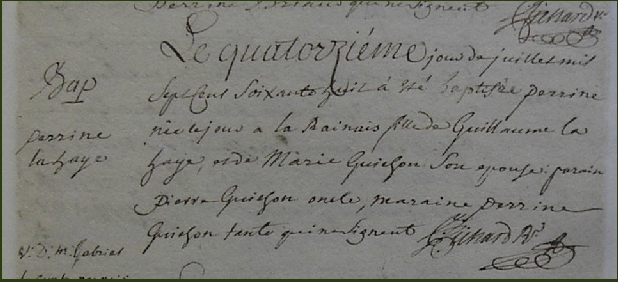 Perrine qui ne signent
Richard Rr
Le quatorziéme jour de juillet mil
Bap
perrine
la haye
sept cens soixante huit à été baptisée perrine
née le jour a la Rainais fille de Guillaume la
haye, et de Marie Guichon son epouse: parain
pierre Guichon oncle, maraine perrine
Guichon tante qui ne signent Richard Rr
V. D. M. Gabriel